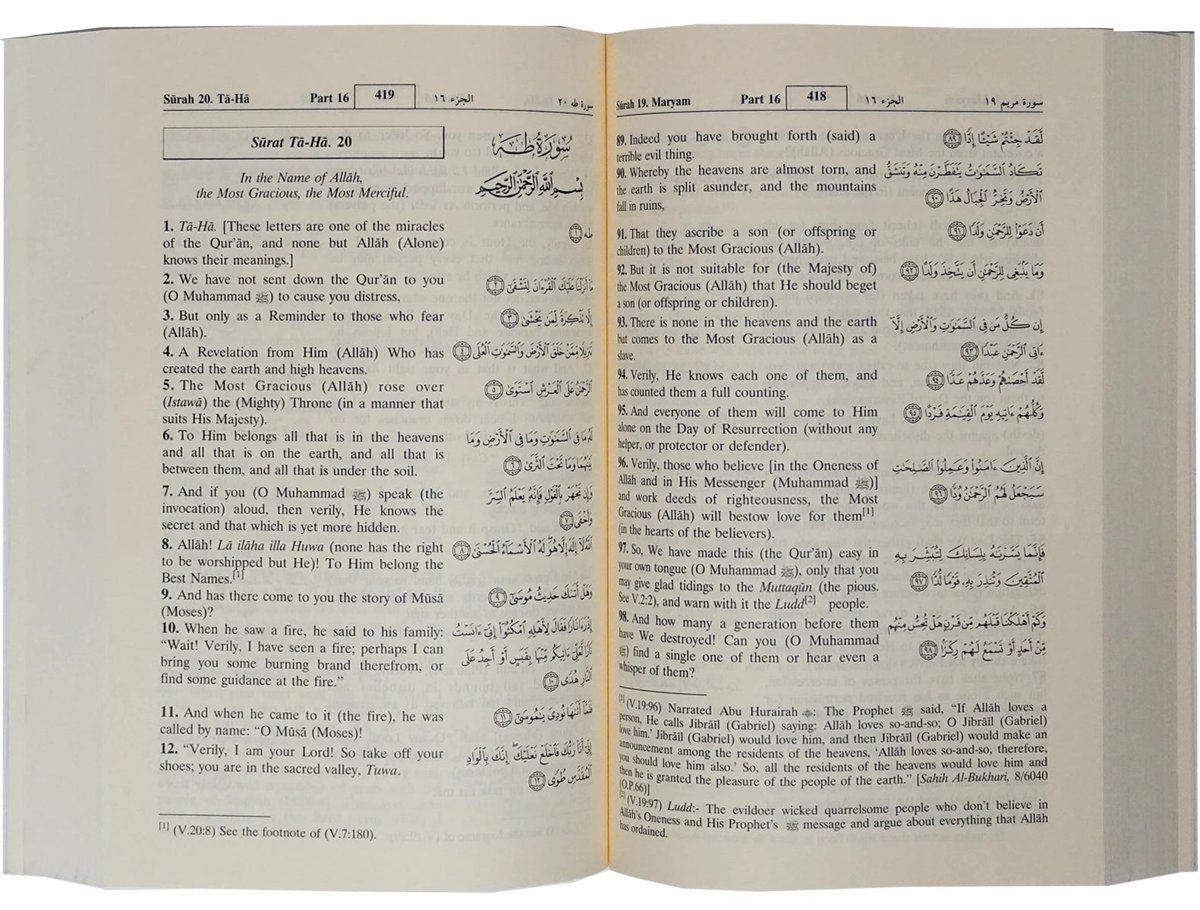 Sūrah 19. Maryam Part 16 418 الجزء ١٦ سورة مريم ١٩
89. Indeed you have brought forth (said) a
terrible evil thing.
90. Whereby the heavens are almost torn, and
the earth is split asunder, and the mountains
fall in ruins,
91. That they ascribe a son (or offspring or
children) to the Most Gracious (Allāh).
92. But it is not suitable for (the Majesty of)
the Most Gracious (Allāh) that He should beget
a son (or offspring or children).
93. There is none in the heavens and the earth
but comes to the Most Gracious (Allāh) as a
slave.
94. Verily, He knows each one of them, and
has counted them a full counting.
95. And everyone of them will come to Him
alone on the Day of Resurrection (without any
helper, or protector or defender).
96. Verily, those who believe [in the Oneness of
Allāh and in His Messenger (Muhammad ﷺ)]
and work deeds of righteousness, the Most
Gracious (Allāh) will bestow love for them[1]
(in the hearts of the believers).
97. So, We have made this (the Qur’ān) easy in
your own tongue (O Muhammad ﷺ), only that you
may give glad tidings to the Muttaqūn (the pious.
See V.2:2), and warn with it the Ludd[2] people.
98. And how many a generation before them
have We destroyed! Can you (O Muhammad
ﷺ) find a single one of them or hear even a
whisper of them?
لَّقَدْ جِئْتُمْ شَيْـًٔا إِدًّا ٨٩
تَكَادُ ٱلسَّمَٰوَٰتُ يَتَفَطَّرْنَ مِنْهُ وَتَنشَقُّ
ٱلْأَرْضُ وَتَخِرُّ ٱلْجِبَالُ هَدًّا ٩٠
أَن دَعَوْا۟ لِلرَّحْمَٰنِ وَلَدًا ٩١
وَمَا يَنۢبَغِى لِلرَّحْمَٰنِ أَن يَتَّخِذَ وَلَدًا ٩٢
إِن كُلُّ مَن فِى ٱلسَّمَٰوَٰتِ وَٱلْأَرْضِ إِلَّآ
ءَاتِى ٱلرَّحْمَٰنِ عَبْدًا ٩٣
لَّقَدْ أَحْصَىٰهُمْ وَعَدَّهُمْ عَدًّا ٩٤
وَكُلُّهُمْ ءَاتِيهِ يَوْمَ ٱلْقِيَٰمَةِ فَرْدًا ٩٥
إِنَّ ٱلَّذِينَ ءَامَنُوا۟ وَعَمِلُوا۟ ٱلصَّٰلِحَٰتِ
سَيَجْعَلُ لَهُمُ ٱلرَّحْمَٰنُ وُدًّا ٩٦
فَإِنَّمَا يَسَّرْنَٰهُ بِلِسَانِكَ لِتُبَشِّرَ بِهِ
ٱلْمُتَّقِينَ وَتُنذِرَ بِهِۦ قَوْمًا لُّدًّا ٩٧
وَكَمْ أَهْلَكْنَا قَبْلَهُم مِّن قَرْنٍ هَلْ تُحِسُّ مِنْهُم
مِّنْ أَحَدٍ أَوْ تَسْمَعُ لَهُمْ رِكْزًۢا ٩٨
[1] (V.19:96) Narrated Abu Hurairah: The Prophet ﷺ said, “If Allāh loves a
person, He calls Jibrāīl (Gabriel) saying: Allāh loves so-and-so; O Jibrāīl (Gabriel)
love him.’ Jibrāīl (Gabriel) would love him, and then Jibrāīl (Gabriel) would make an
announcement among the residents of the heavens, ‘Allāh loves so-and-so, therefore,
you should love him also.’ So, all the residents of the heavens would love him and
then he is granted the pleasure of the people of the earth.” [Sahih Al-Bukhari, 8/6040
(O.P.66)]
[2] (V.19:97) Ludd:- The evildoer wicked quarrelsome people who don’t believe in
Allāh’s Oneness and His Prophet’s ﷺ message and argue about everything that Allāh
has ordained.
Sūrah 20. Tā-Hā Part 16 419 الجزء ١٦ سورة طه ٢٠
Sūrat Tā-Hā. 20
سُورَةُ طه
In the Name of Allāh,
the Most Gracious, the Most Merciful.
بِسْمِ ٱللَّهِ ٱلرَّحْمَٰنِ ٱلرَّحِيمِ
1. Tā-Hā. [These letters are one of the miracles
of the Qur’ān, and none but Allāh (Alone)
knows their meanings.]
2. We have not sent down the Qur’ān to you
(O Muhammad ﷺ) to cause you distress,
3. But only as a Reminder to those who fear
(Allāh).
4. A Revelation from Him (Allāh) Who has
created the earth and high heavens.
5. The Most Gracious (Allāh) rose over
(Istawā) the (Mighty) Throne (in a manner that
suits His Majesty).
6. To Him belongs all that is in the heavens
and all that is on the earth, and all that is
between them, and all that is under the soil.
7. And if you (O Muhammad ﷺ) speak (the
invocation) aloud, then verily, He knows the
secret and that which is yet more hidden.
8. Allāh! Lā ilāha illa Huwa (none has the right
to be worshipped but He)! To Him belong the
Best Names.[1]
9. And has there come to you the story of Mūsā
(Moses)?
10. When he saw a fire, he said to his family:
“Wait! Verily, I have seen a fire; perhaps I can
bring you some burning brand therefrom, or
find some guidance at the fire.”
11. And when he came to it (the fire), he was
called by name: “O Mūsā (Moses)!
12. “Verily, I am your Lord! So take off your
shoes; you are in the sacred valley, Tuwa.
طه ١
مَآ أَنزَلْنَا عَلَيْكَ ٱلْقُرْءَانَ لِتَشْقَىٰٓ ٢
إِلَّا تَذْكِرَةً لِّمَن يَخْشَىٰ ٣
تَنزِيلًا مِّمَّنْ خَلَقَ ٱلْأَرْضَ وَٱلسَّمَٰوَٰتِ ٱلْعُلَى ٤
ٱلرَّحْمَٰنُ عَلَى ٱلْعَرْشِ ٱسْتَوَىٰ ٥
لَهُۥ مَا فِى ٱلسَّمَٰوَٰتِ وَمَا فِى ٱلْأَرْضِ وَمَا
بَيْنَهُمَا وَمَا تَحْتَ ٱلثَّرَىٰ ٦
وَإِن تَجْهَرْ بِٱلْقَوْلِ فَإِنَّهُۥ يَعْلَمُ ٱلسِّرَّ
وَأَخْفَى ٧
ٱللَّهُ لَآ إِلَٰهَ إِلَّا هُوَ لَهُ ٱلْأَسْمَآءُ ٱلْحُسْنَىٰ ٨
وَهَلْ أَتَىٰكَ حَدِيثُ مُوسَىٰٓ ٩
إِذْ رَءَا نَارًا فَقَالَ لِأَهْلِهِ ٱمْكُثُوٓا۟ إِنِّىٓ ءَانَسْتُ
نَارًا لَّعَلِّىٓ ءَاتِيكُم مِّنْهَا بِقَبَسٍ أَوْ أَجِدُ عَلَى
ٱلنَّارِ هُدًى ١٠
فَلَمَّآ أَتَىٰهَا نُودِىَ يَٰمُوسَىٰٓ ١١
إِنِّىٓ أَنَا۠ رَبُّكَ فَٱخْلَعْ نَعْلَيْكَ إِنَّكَ بِٱلْوَادِ
ٱلْمُقَدَّسِ طُوًى ١٢
[1] (V.20:8) See the footnote of (V.7:180).